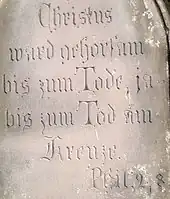 Christus
ward gehorsam
bis zum Tode, ja
bis zum Tod am
Kreuze.
Phil. 2, 8